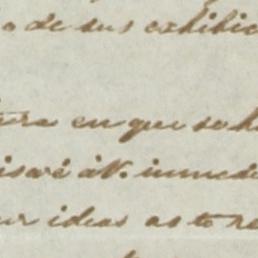 o de sus exhibic
tura en que se h
isaré à V. inmedi
ur ideas as to re